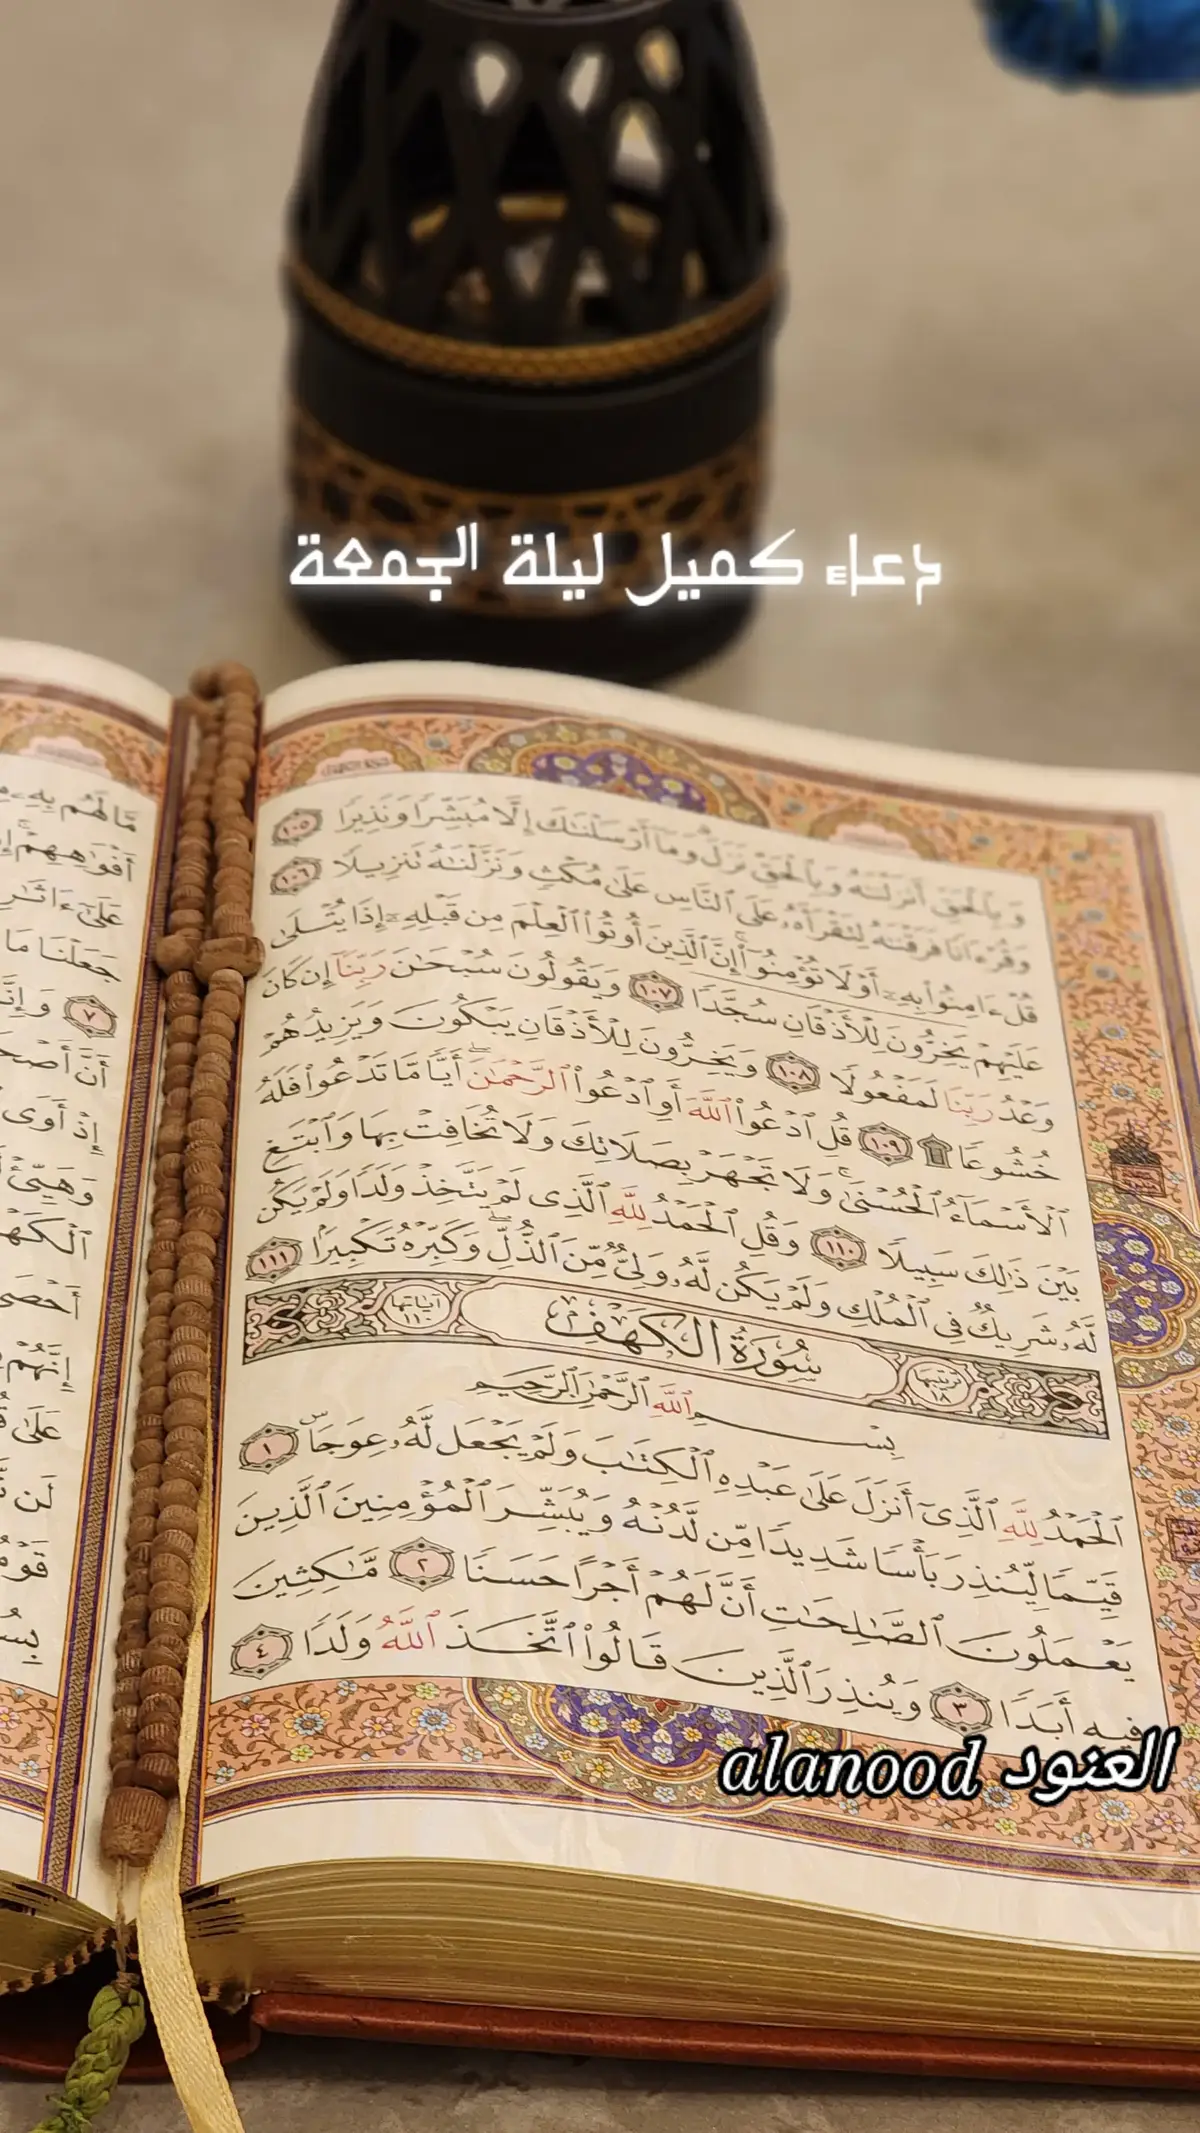 دعاء كميل ليلة الجمعة
وَبِٱلْحَقِّ أَنزَلْنَٰهُ وَبِٱلْحَقِّ نَزَلَ وَمَآ أَرْسَلْنَٰكَ إِلَّا مُبَشِّرًا وَنَذِيرًا ١٠٥
وَقُرْءَانًا فَرَقْنَٰهُ لِتَقْرَأَهُۥ عَلَى ٱلنَّاسِ عَلَىٰ مُكْثٍ وَنَزَّلْنَٰهُ تَنزِيلًا ١٠٦
قُلْ ءَامِنُوا۟ بِهِۦٓ أَوْ لَا تُؤْمِنُوٓا۟ إِنَّ ٱلَّذِينَ أُوتُوا۟ ٱلْعِلْمَ مِن قَبْلِهِۦٓ إِذَا يُتْلَىٰ
عَلَيْهِمْ يَخِرُّونَ لِلْأَذْقَانِ سُجَّدًا ١٠٧ وَيَقُولُونَ سُبْحَٰنَ رَبِّنَآ إِن كَانَ
وَعْدُ رَبِّنَا لَمَفْعُولًا ١٠٨ وَيَخِرُّونَ لِلْأَذْقَانِ يَبْكُونَ وَيَزِيدُهُمْ
خُشُوعًا ۩ ١٠٩ قُلِ ٱدْعُوا۟ ٱللَّهَ أَوِ ٱدْعُوا۟ ٱلرَّحْمَٰنَ ۖ أَيًّا مَّا تَدْعُوا۟ فَلَهُ
ٱلْأَسْمَآءُ ٱلْحُسْنَىٰ ۚ وَلَا تَجْهَرْ بِصَلَاتِكَ وَلَا تُخَافِتْ بِهَا وَٱبْتَغِ
بَيْنَ ذَٰلِكَ سَبِيلًا ١١٠ وَقُلِ ٱلْحَمْدُ لِلَّهِ ٱلَّذِى لَمْ يَتَّخِذْ وَلَدًا وَلَمْ يَكُن
لَّهُۥ شَرِيكٌ فِى ٱلْمُلْكِ وَلَمْ يَكُن لَّهُۥ وَلِىٌّ مِّنَ ٱلذُّلِّ ۖ وَكَبِّرْهُ تَكْبِيرًۢا ١١١
ترتيبها ١٨ سُورَةُ الكَهْفِ آياتها ١١٠
بِسْمِ ٱللَّهِ ٱلرَّحْمَٰنِ ٱلرَّحِيمِ
ٱلْحَمْدُ لِلَّهِ ٱلَّذِىٓ أَنزَلَ عَلَىٰ عَبْدِهِ ٱلْكِتَٰبَ وَلَمْ يَجْعَل لَّهُۥ عِوَجَاۜ ١
قَيِّمًا لِّيُنذِرَ بَأْسًا شَدِيدًا مِّن لَّدُنْهُ وَيُبَشِّرَ ٱلْمُؤْمِنِينَ ٱلَّذِينَ
يَعْمَلُونَ ٱلصَّٰلِحَٰتِ أَنَّ لَهُمْ أَجْرًا حَسَنًا ٢ مَّٰكِثِينَ
فِيهِ أَبَدًا ٣ وَيُنذِرَ ٱلَّذِينَ قَالُوا۟ ٱتَّخَذَ ٱللَّهُ وَلَدًا ٤
العنود alanood
مَّا لَهُم بِهِۦ
أَفْوَٰهِهِمْ ۚ
عَلَىٰٓ ءَاثَٰرِ
جَعَلْنَا مَا
٧ وَإِنَّا
أَنَّ أَصْحَ
إِذْ أَوَى
وَهَيِّئْ
ٱلْكَهْفِ
أَحْصَىٰ
إِنَّهُمْ
عَلَىٰ
لَن